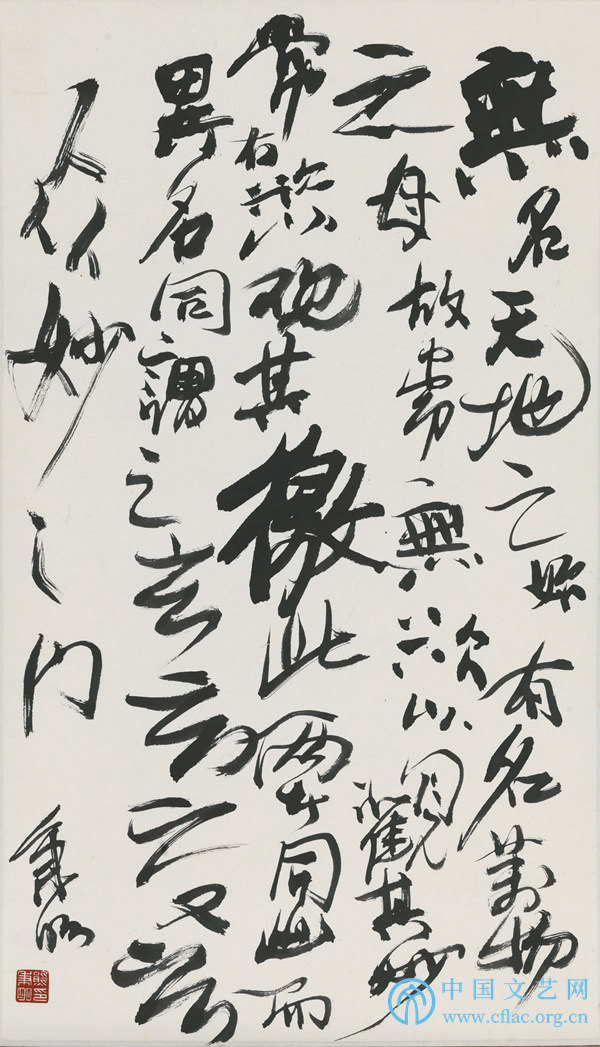 無名天地之始有名萬物
之母故常無欲以觀其妙
常有欲以观其徼此兩者同出而
異名同謂之玄玄之又玄
众妙之门
秉明
中国文艺网
www.cflac.org.cn